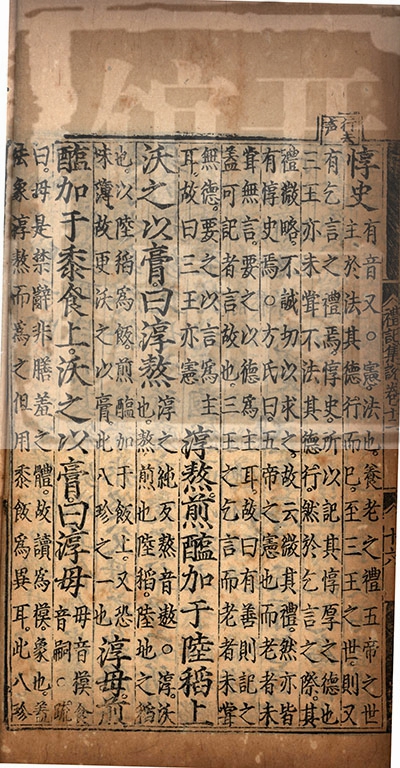 行去
聲
惇史
有音又。○憲法也。養老之禮五帝之世
主於法其德行而已。至三王之世。則又
有乞言之禮焉。惇史。所以記其惇厚之德也
三王亦未嘗不法其德行。然於乞言之際。其
禮微略。不誠切以求之。故云微其禮。然亦皆
有惇史焉。○方氏曰。五帝之憲也而老者未
嘗無言。要之以德爲主耳。故曰有善則記之
蓋可記者言故也。三王之乞言而老者未嘗
無德。要之以言爲主
耳。故曰三王亦憲
淳熬。煎醢加于陸稻上
沃之以膏。曰淳熬
淳之純反熬音遨。○淳。沃
也。熬煎也。陸稻。陸地之稻
也。以陸稻爲飯煎醢加于飯上。又恐
味薄故更沃之以膏。此八珍之一也
淳毋。煎
醢加于黍食上。沃之以膏。曰淳毋
毋音模食
音嗣。○疏
曰。毋是禁辭非膳羞之體。故讀爲模象也。蓋
法象淳熬而爲之但用黍飯爲異耳此八珍
禮記集說卷十
十六